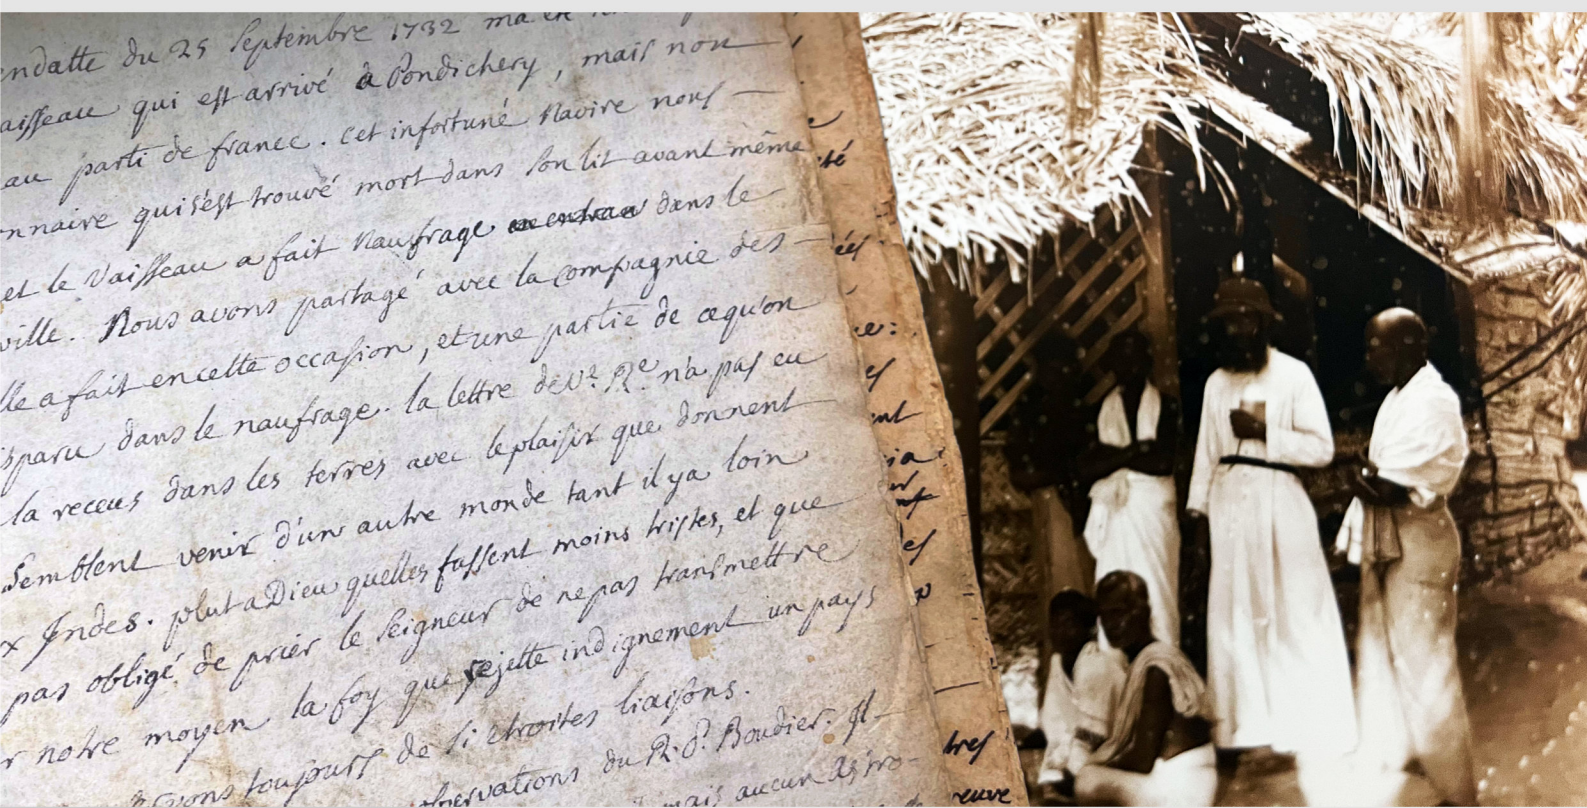 endatte du 25 Septembre 1732 ma
aisseau qui est arrivé à Pondichery, mais non
au parti de france. cet infortuné Navire nous
nnaire qui s'est trouvé mort dans son lit avant même
et le Vaisseau a fait Naufrage dans le
ville. Nous avons partagé avec la compagnie des
lle a fait en cette occasion, et une partie de ce qu'on
isparu dans le naufrage. la lettre de V.e R.e n'a pas eu
la receus dans les terres avec le plaisir que donnent
Semblent venir d'un autre monde tant il y a loin
x Indes. plut a Dieu quelles fussent moins tristes, et que
pas obligé de prier le Seigneur de ne pas transmettre
r notre moyen la foy que rejette indignement un pays
avons toujours de si étroites liaisons.
observations du R. P. Boudier. Il
mais aucun Astro-
té
ées
es
ent
es
tres
reuve